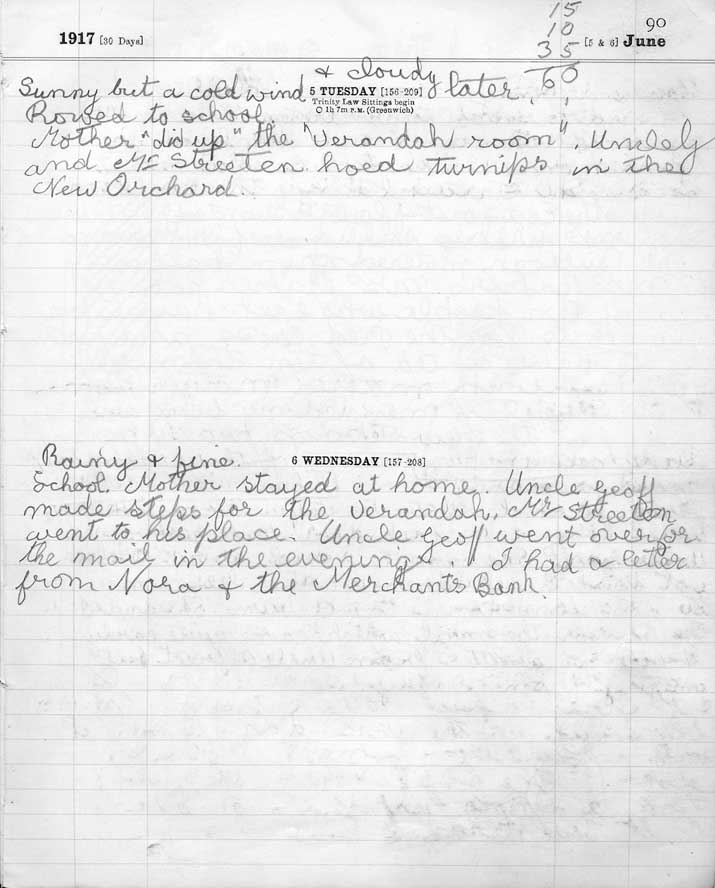 15
10
90
1917 [30 Days]
35
[5 & 6] June
60
& cloudy
Sunny but a cold wind 5 TUESDAY [156-209] later.
Trinity Law Sittings begin
○ 1h 7m P.M. (Greenwich)
Rowed to school.
Mother "did up" the "Verandah room". Uncle G
and Mr Streeten hoed turnips in the
New Orchard.
Rainy & fine. 6 WEDNESDAY [157-208]
School. Mother stayed at home. Uncle Geoff
made steps for the verandah. Mr Streeten
went to his place. Uncle Geoff went over for
the mail in the evening. I had a letter
from Nora & the Merchants Bank.